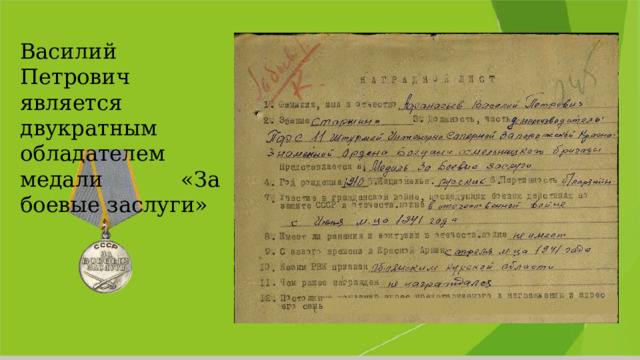 Василий
Петрович
является
двукратным
обладателем
медали «За
боевые заслуги»
СССР
ЗА
БОЕВЫЕ
ЗАСЛУГИ
НАГРАДНОЙ ЛИСТ
1. Фамилия, имя и отчество Василий Петрович
2. Звание Старшина 3. Должность, часть
11 Штурмовой Инженерно Саперной Запорожской Красно-
Знаменной Ордена Богдана Хмельницкого Бригады
Представляется к Медаль За боевые заслуги
4. Год рождения 1910 5. русский 6. Партийность
7. Участие в гражданской войне, последующих боевых действиях по
защите СССР и отечествен. войне в отечественной войне
с Июня м-ца 1941 года
8. Имеет ли ранения и контузии в отечествен. войне не имеет
9. С какого времени в Красной Армии с апреля м-ца 1941 года
10. Каким РВК призван Курской области
11. Чем ранее награжден не награждался
12. Постоянный адрес представляемого к награждению и адрес
его семьи